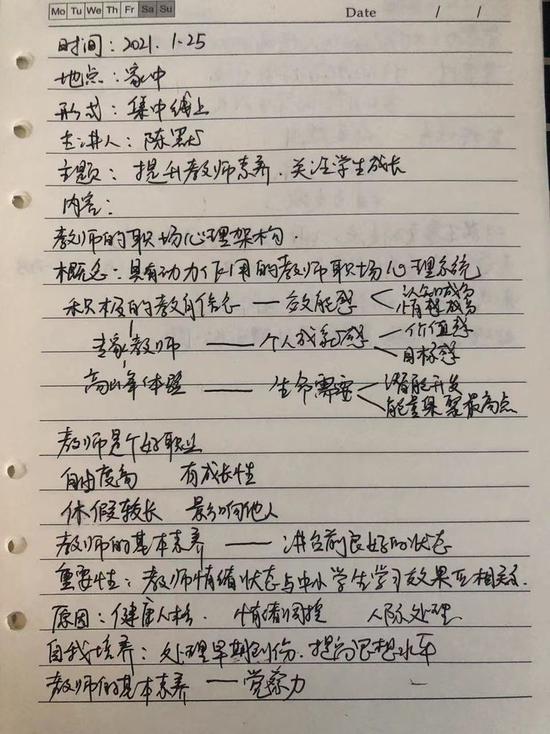 Mo Tu We Th Fr Sa Su Date / /
时间：2021.1.25
地点：家中
形式：集中线上
主讲人：陈
主题：提升教师素养、关注学生成长
内容：
教师的职场心理架构
概念：具有动力作用的教师职场心理系统
积极的教育信念 —— 效能感 认知成分
情感成分
专家教师 —— 个人成就感 价值感
目标感
高峰体验 —— 生命需要 潜能开发
能量聚至最高点
教师是个好职业
自由度高 有成长性
休假较长 影响他人
教师的基本素养 —— 讲台前良好的状态
重要性：教师情绪状态与中小学生学习效果互相关系
原因：健康人格 情绪调控 人际处理
自我培养：处理早期创伤、提高思想水平
教师的基本素养 —— 觉察力